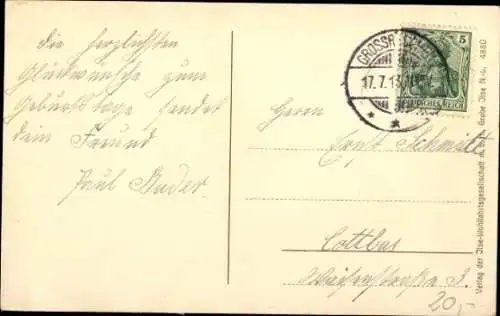 die herzlichsten
Glückwünsche zum
Geburtstage sendet
dein Freund
Paul
Herrn
Ernst Schmidt
Cottbus
20,-
5
GROSSR
17.7.13
DEUTSCHES REICH
Verlag der Ilse-Wohlfahrtsgesellschaft m. b. H., Grube Ilse N.-L. 4880